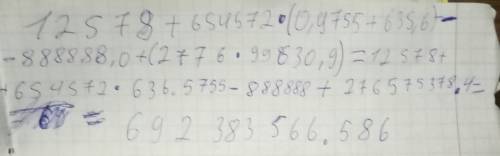 12578 + 654572 · (0,9755 + 635,6) -
- 888888,0 + (2776 · 99630,9) = 12578 +
+ 654572 · 636.5755 - 888888 + 276575378.4 =
= 692383566.586